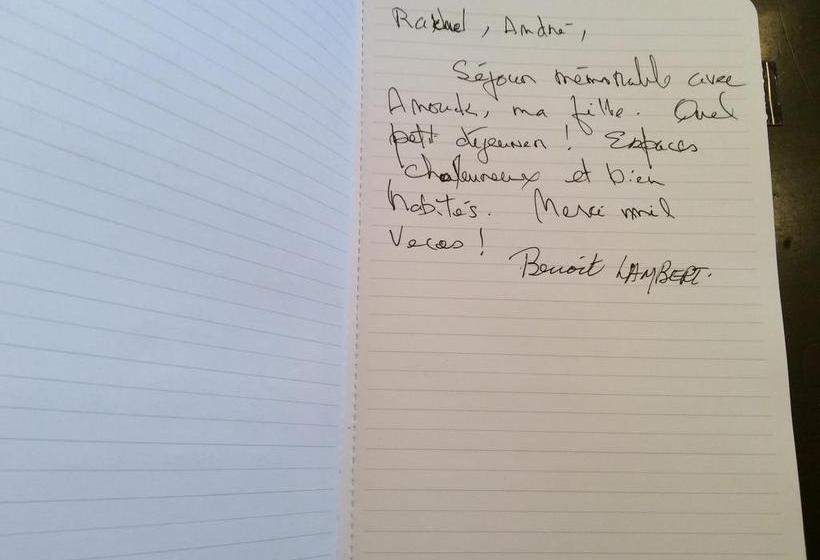 Rachel, André,
Séjour mémorable avec
Anouck, ma fille. Quel
petit déjeuner ! Espaces
chaleureux et bien
habités. Merci mil
Veces !
Benoit LAMBERT.